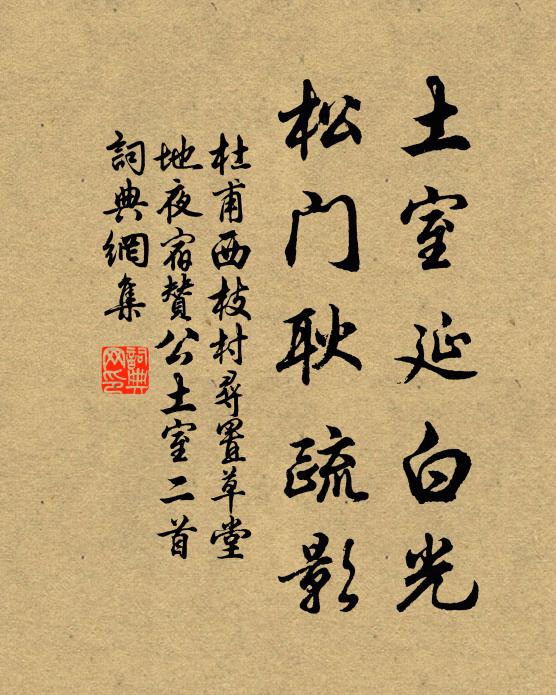 土室延白光
松门耿疏影
杜甫西枝村尋置草堂
地夜宿贊公土室二首
詞典網集
詞典網印